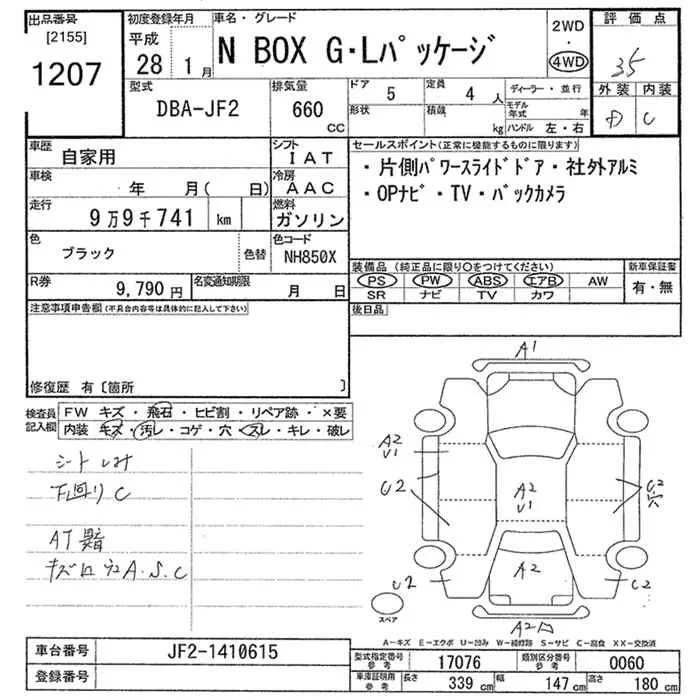 出品番号 初度登録年月 車名・グレード 2WD 評価点
[2155] 平成 ・
1207 28 1月 N BOX G・Lパッケージ 4WD 35
型式 排気量 ドア 5 定員 4人 ディーラー・並行 外装 内装
DBA-JF2 660 CC 形状 積載 kg モデル年式 年 C
ハンドル 左・右
車歴 自家用 シフト IAT セールスポイント(正常に機能するものに限ります)
車検 年 月( 日) 冷房 AAC ・片側パワースライドドア・社外アルミ
走行 9万9千741 km 燃料 ガソリン ・OPナビ・TV・バックカメラ
色 ブラック 色替 色コード NH850X
装備品(純正品に限り○をつけてください) 新車保証書
R券 9,790円 名変通知期限 月 日 PS PW ABS エアB AW 有・無
SR ナビ TV カワ
注意事項申告欄(不具合内容等は具体的に記入して下さい) 後日品
修復歴 有〔箇所 〕
検査員記入欄 FW キズ・飛石・ヒビ割・リペア跡・×要
内装 キズ・汚レ・コゲ・穴・スレ・キレ・破レ
シート
下回りC
AT
A.S.C
A1
A2
U1
U2
A2
U1
U2
穴
A2
U2
U2
A2
スペア
A-キズ E-エクボ U-凹み W-補修跡 S-サビ C-腐食 XX-交換済
車台番号 JF2-1410615
登録番号
型式指定番号 参考 17076 類別区分番号 参考 0060
車庫証明用 参考 長さ 339 cm 幅 147 cm 高さ 180 cm